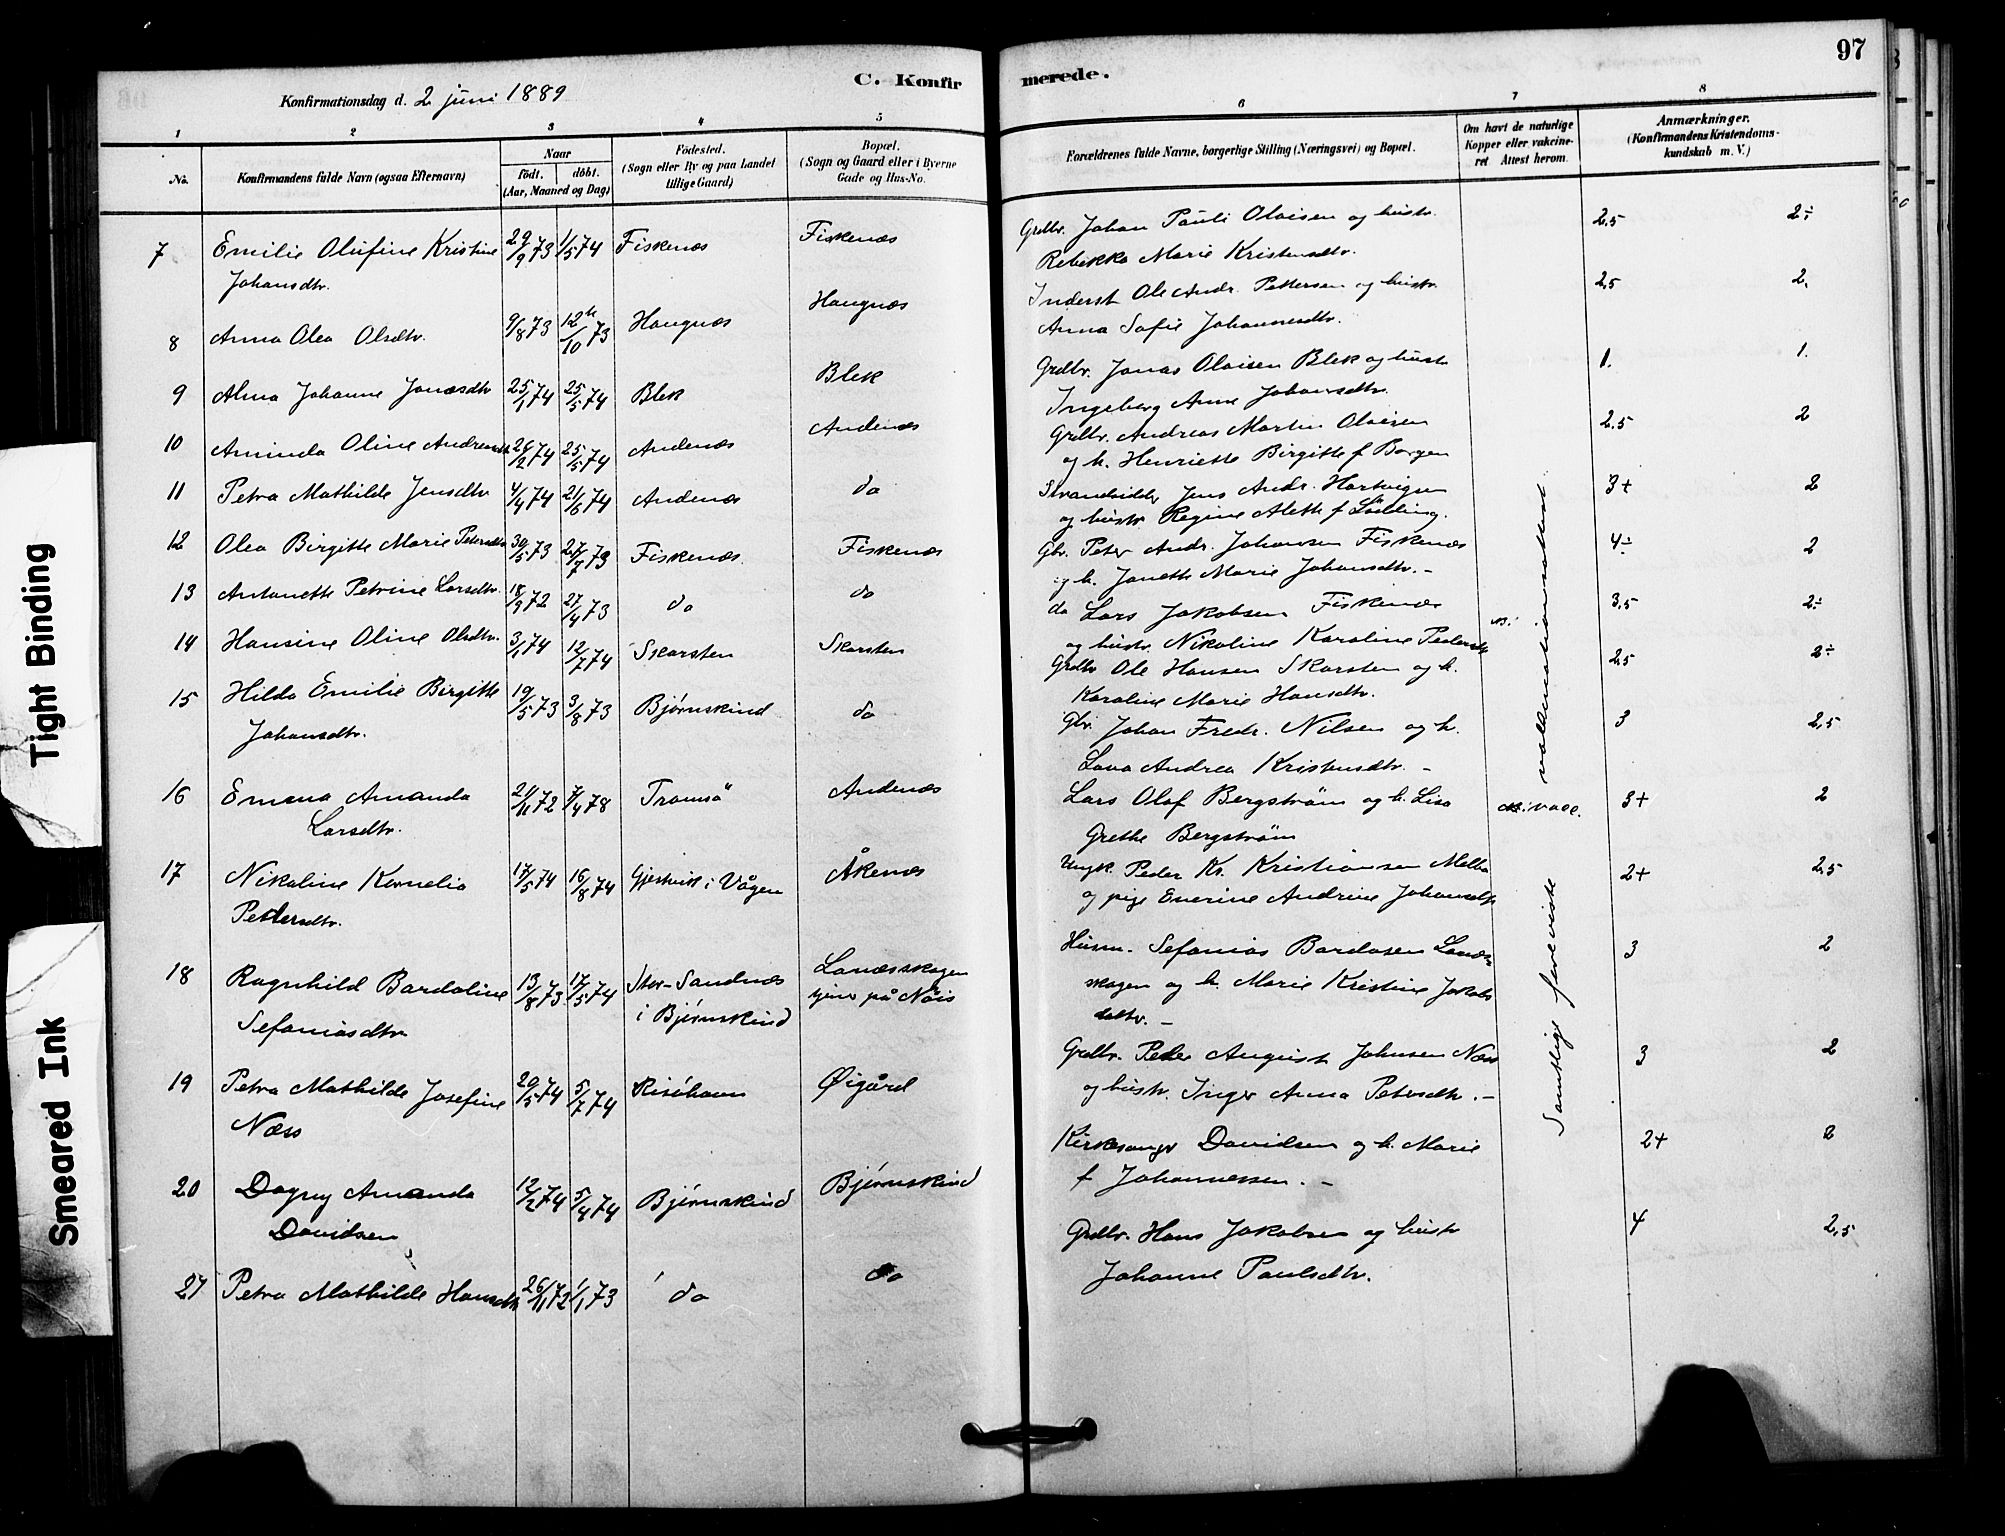 97
C. Konfirmerede.
Konfirmationsdag d. 2 juni 1889
1 2 3 4 5 6 7 8
No.
Konfirmandens fulde Navn (ogsaa Efternavn)
Naar
født. døbt.
(Aar, Maaned og Dag)
Födested.
(Sogn eller By og paa Landet
tillige Gaard)
Bopæl.
(Sogn og Gaard eller i Byerne
Gade og Hus-No.
Forældrenes fulde Navne, borgerlige Stilling (Næringsvei) og Bopæl.
Om havt de naturlige
Kopper eller vakcine-
ret Attest herom.
Anmærkninger.
(Konfirmandens Kristendoms-
kundskab m. V.)
7 Emilie Olufine Kristine 29/9 73 1/5 74 Fiskenæs Fiskenæs Grdbr. Johan Pauli Olaisen og hustr. 2,5 2÷
Johansdtr. Rebekka Marie Kristensdtr.
8 Anna Olea Olsdtr. 9/8 73 12/10 73 Haugnæs Haugnæs Inderst Ole Andr. Pettersen og hustr 2,5 2.
Anna Sofie Johannesdtr.
9 Alma Johanne Jonasdtr 25/1 74 25/5 74 Blek Blek Grdbr. Jonas Olaisen Blek og hustr 1. 1.
Ingeborg Anne Johansdtr.
10 Aminda Oline Andreasdtr 26/2 74 25/5 74 Andenæs Andenæs Grdbr. Andreas Martin Olaisen 2,5 2
og h. Henriette Birgitte f Borgen
11 Petra Mathilde Jensdtr 4/4 74 21/6 74 Andenæs do Strandsidder Jens Andr. Hartvigsen 3+ 2
og hustr Regine Aleth f
12 Olea Birgitte Marie Petersdtr 30/5 73 27/7 73 Fiskenæs. Fiskenæs Gbr. Peter Andr. Johansen Fiskenæs 4÷ 2
og h. Janette Marie Johansdtr. -
13 Antonette Petrine Larsdtr. 18/9 72 27/4 73 do do do Lars Jakobsen Fiskenæs 3,5 2÷
og hustr. Nikoline Karoline Pedersdtr
14 Hansine Oline Olsdtr. 3/1 74 12/7 74 Skarsten Skarsten Grdbr Ole Hansen Skarsten og h. 2,5 2÷
Karoline Marie Hansdtr.
15 Hilda Emilie Birgitte 19/5 73 3/8 73 Bjørnskind do Gbr. Johan Fredr. Nilsen og h. 3 2,5
Johansdtr. Lava Andrea Kristensdtr. -
16 Emma Amanda 21/11 72 7/4 78 Tromsö Andenæs Lars Olof Bergström og h. Lisa 3+ 2
Larsdtr. Grethe Bergström
17 Nikoline Kornelia 17/5 74 16/8 74 i Vågen Åkenæs Ungk. Peder Kr. Kristiansen Melbo 2+ 2,5
Pedersdtr. og pige Enerine Andrine Johansdtr
18 Ragnhild Bardoline 13/8 73 17/5 74 Stor-Sandnæs Lanæsskogen Husm. Sefanias Bardosen Lanæs- 3 2
Sefaniasdtr i Bjørnskind tjener på Nöis skogen og h. Marie Kristine Jakobs
datter. -
19 Petra Mathilde Josefine 20/5 74 5/7 74 Risöhavn Øigård Grdbr. Peder August Johnsen Næss 3 2
Næss og hustr. Inger Anna Petersdtr. -
20 Dagny Amanda 12/2 74 5/4 74 Bjørnskind Bjørnskind Kirkesanger Davidsen og h. Marie 2+ 2
Davidsen f Johannessen. -
21 Petra Mathilde Hansdtr 26/11 72 1/1 73 do do Grdbr. Hans Jakobsen og hustr 4 2,5
Johanne Paulsdtr.
Samtlige foreviste vakcinationsattest
Tight Binding
Smeared Ink